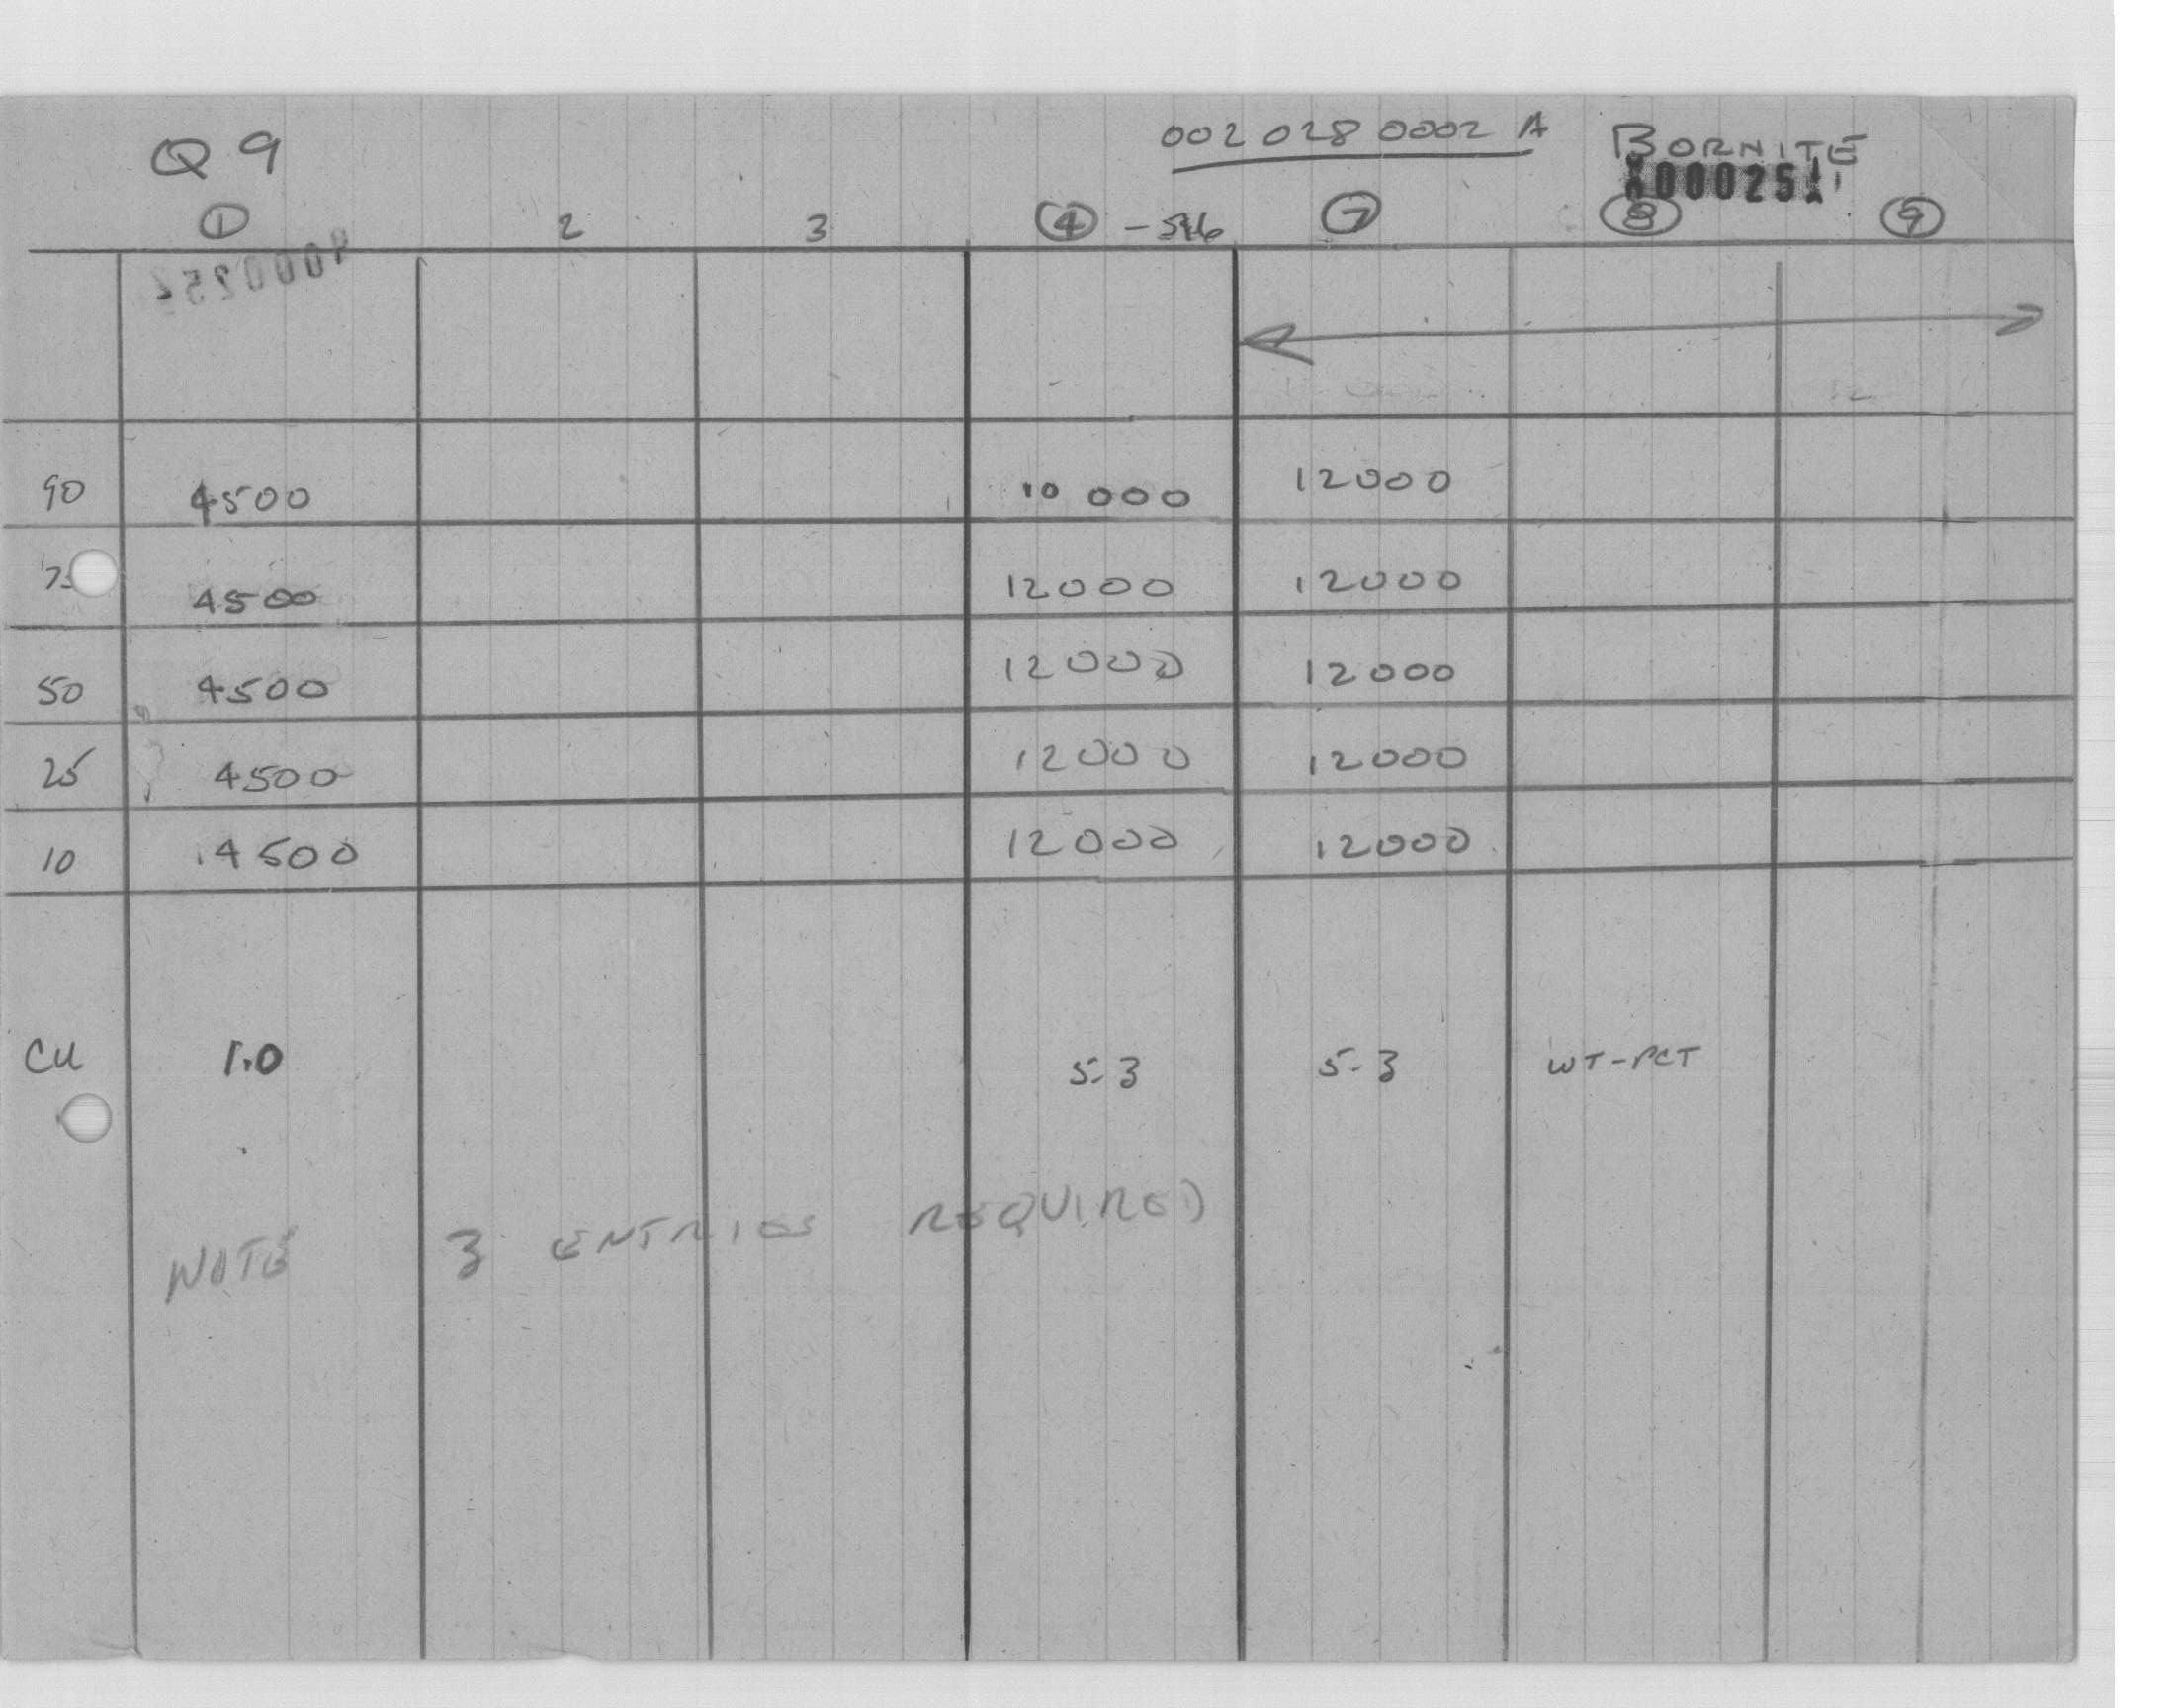 Q9 002 028 0002 A BORNITE
1 2 3 4 - 5+6 7 8 9
90 4500 10 000 12000
4500 12000 12000
50 4500 12000 12000
25 4500 12000 12000
10 4500 12000 12000
CU 1.0 5.3 5.3 WT-PCT
NOTE 3 ENTRIES REQUIRED